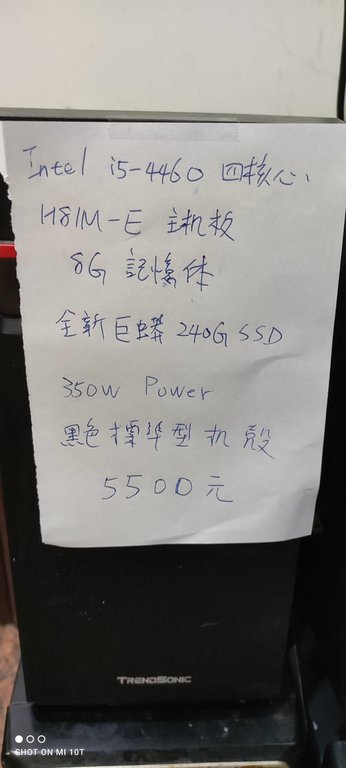 Intel i5-4460 四核心
H81M-E 主机板
8G 記憶体
全新巨蟒 240G SSD
350W Power
黑色標準型机殼
5500元
TRENDSONIC
SHOT ON MI 10T